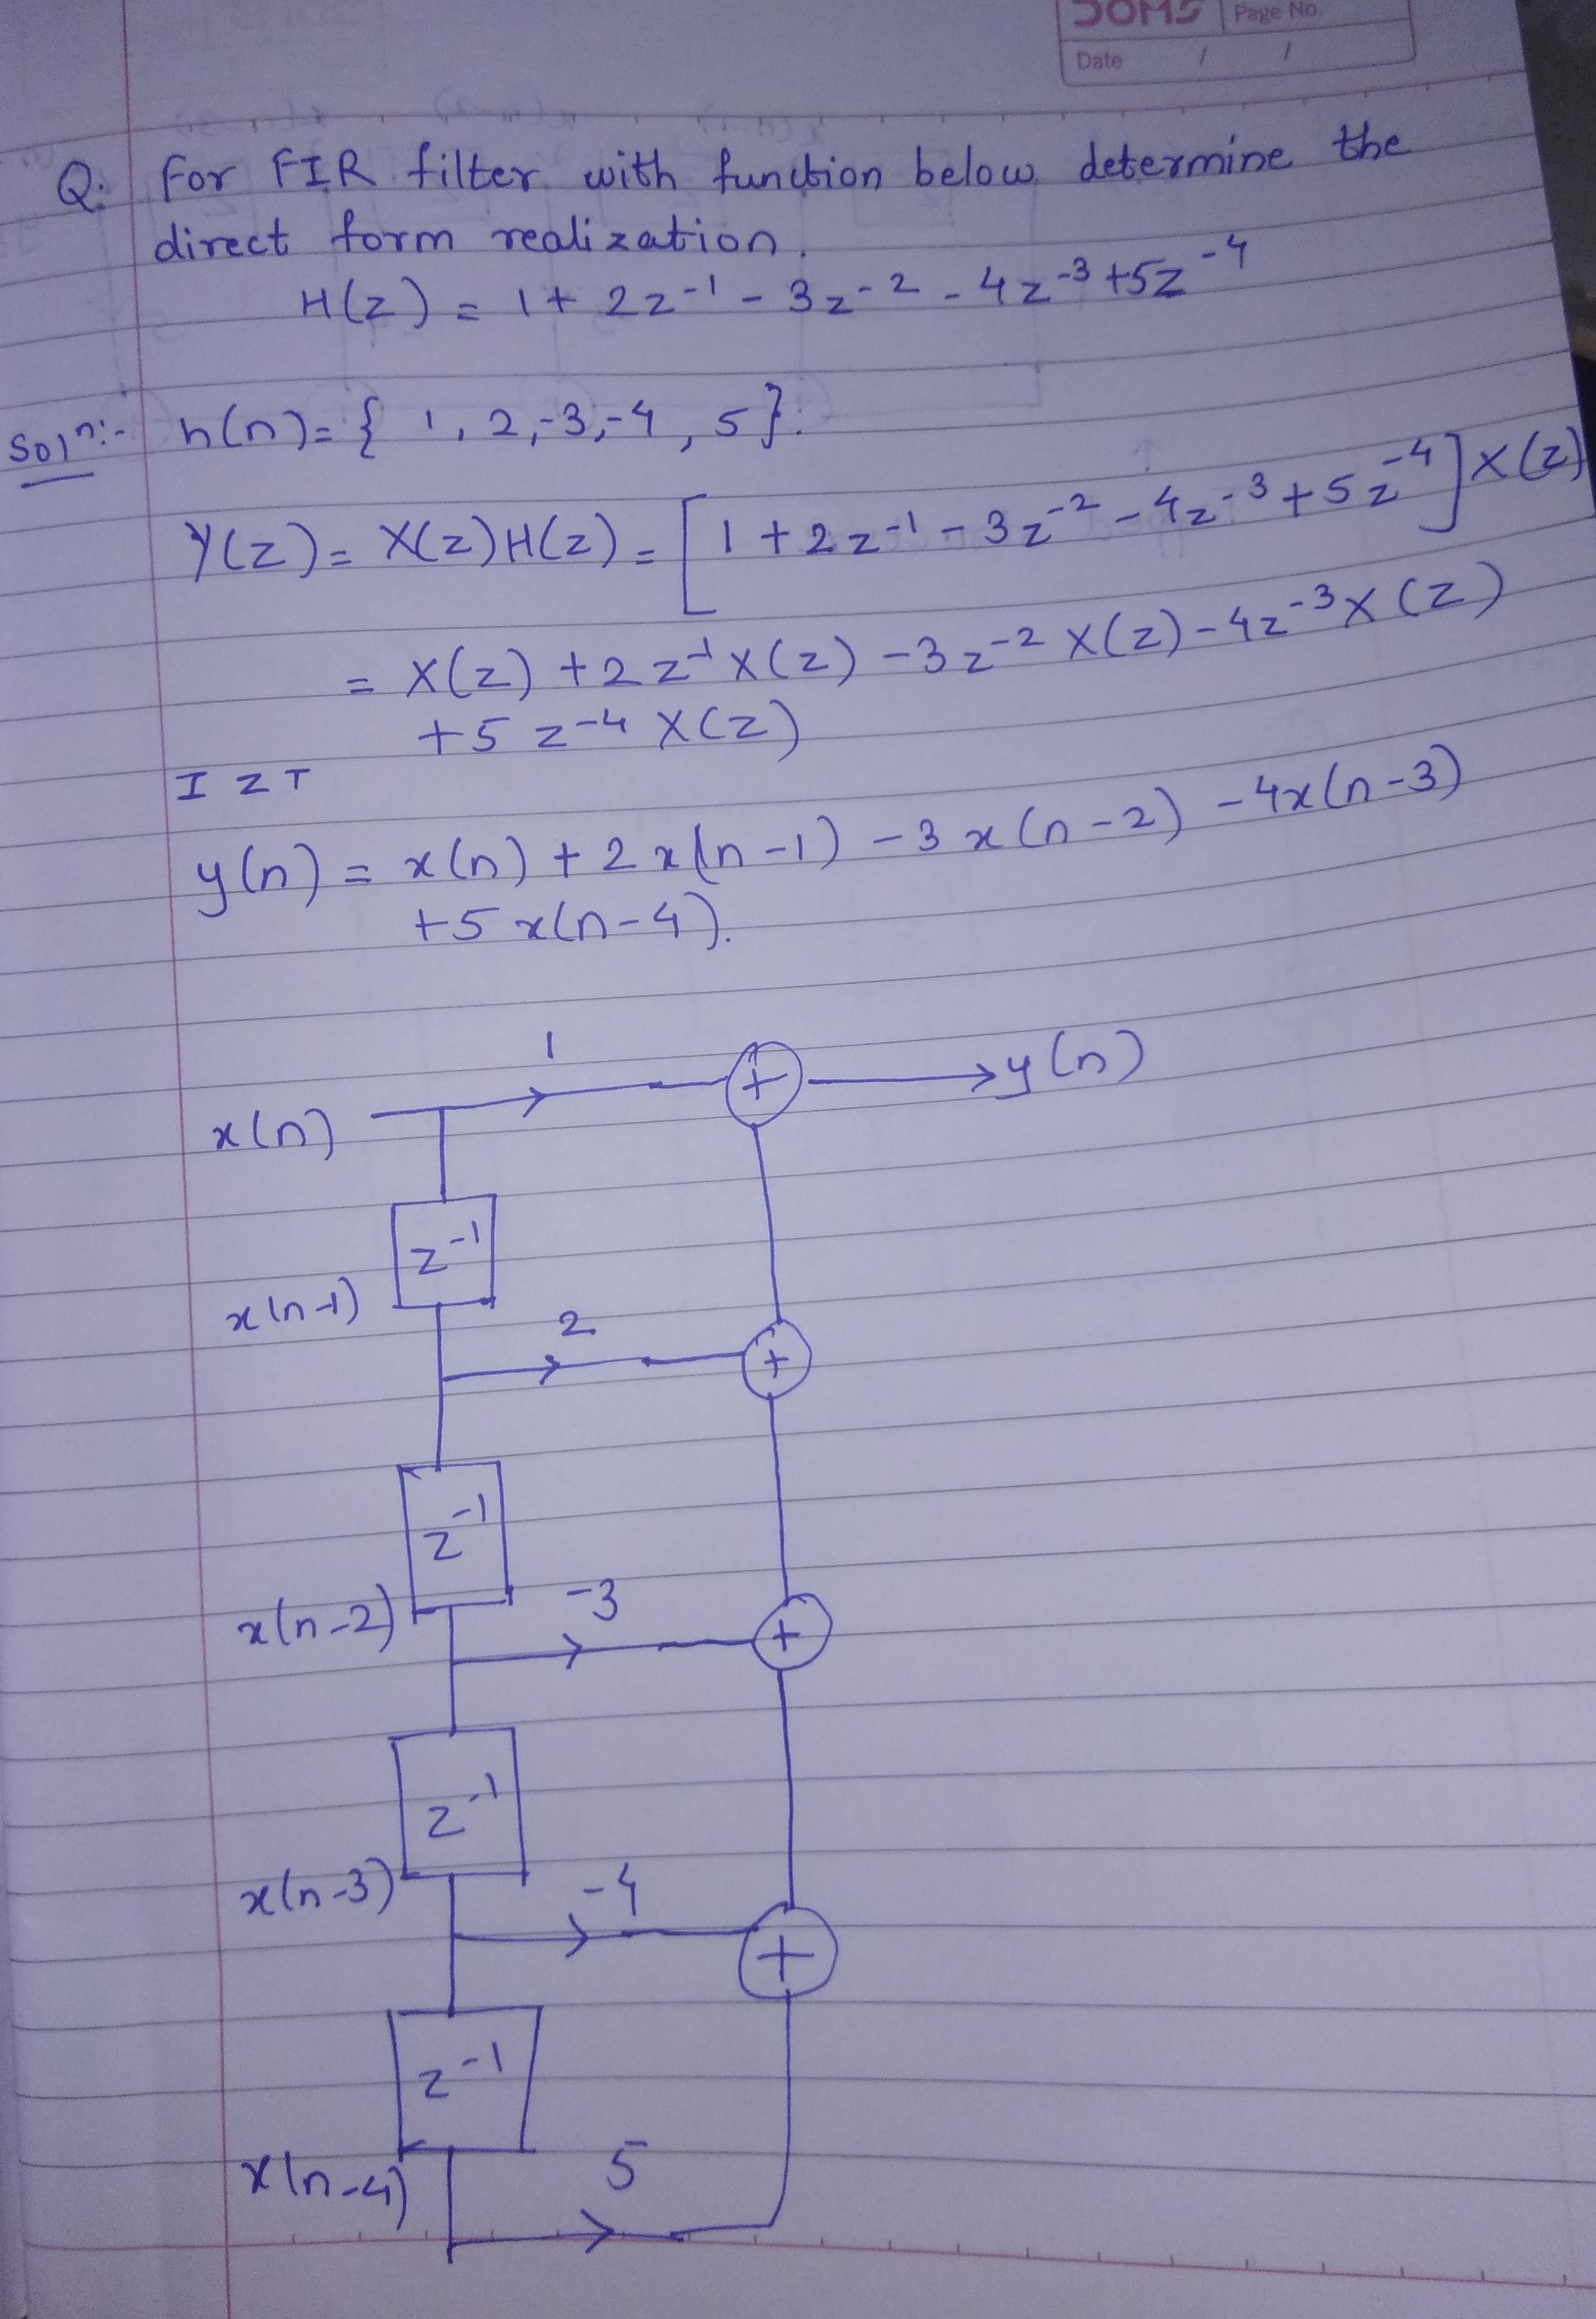 DOMS Page No.
Date / /
Q: For FIR filter with function below determine the
direct form realization.
H(z) = 1 + 2z⁻¹ - 3z⁻² - 4z⁻³ + 5z⁻⁴
Solⁿ:- h(n) = { 1, 2, -3, -4, 5 }.
Y(z) = X(z)H(z) = [1 + 2z⁻¹ - 3z⁻² - 4z⁻³ + 5z⁻⁴] X(z)
= X(z) + 2z⁻¹X(z) - 3z⁻²X(z) - 4z⁻³X(z)
+5z⁻⁴X(z)
IZT
y(n) = x(n) + 2x(n-1) - 3x(n-2) - 4x(n-3)
+5x(n-4).
1
x(n) + y(n)
z⁻¹
x(n-1)
2
+
z⁻¹
x(n-2)
-3
+
z⁻¹
x(n-3)
-4
+
z⁻¹
x(n-4)
5